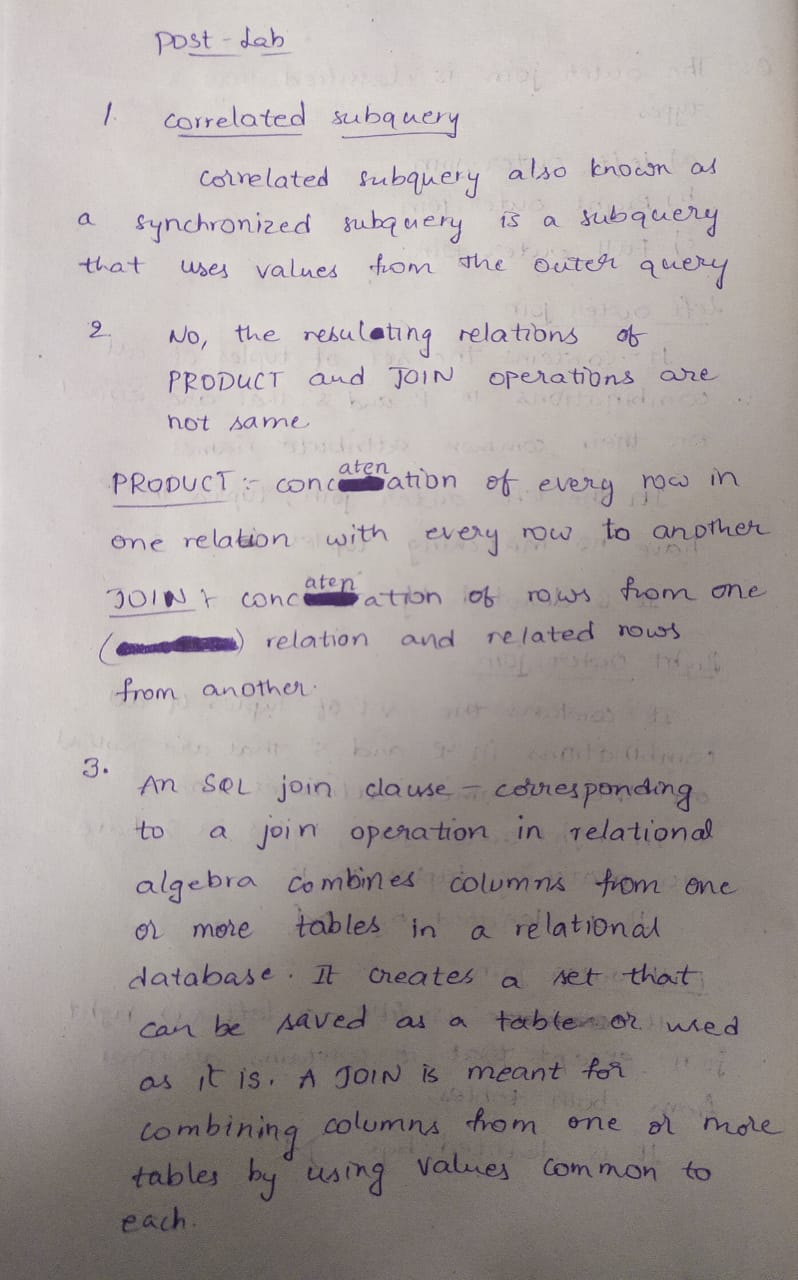 Post - Lab
1. correlated subquery
correlated subquery also known as
a synchronized subquery is a subquery
that uses values from the outer query
2. No, the resulating relations of
PRODUCT and JOIN operations are
not same
PRODUCT :- concatenation of every row in
one relation with every row to another
JOIN : concatenation of rows from one
( ) relation and related rows
from another.
3. An SQL join clause - corresponding
to a join operation in relational
algebra combines columns from one
or more tables in a relational
database. It creates a set that
can be saved as a table or used
as it is. A JOIN is meant for
combining columns from one or more
tables by using values common to
each.